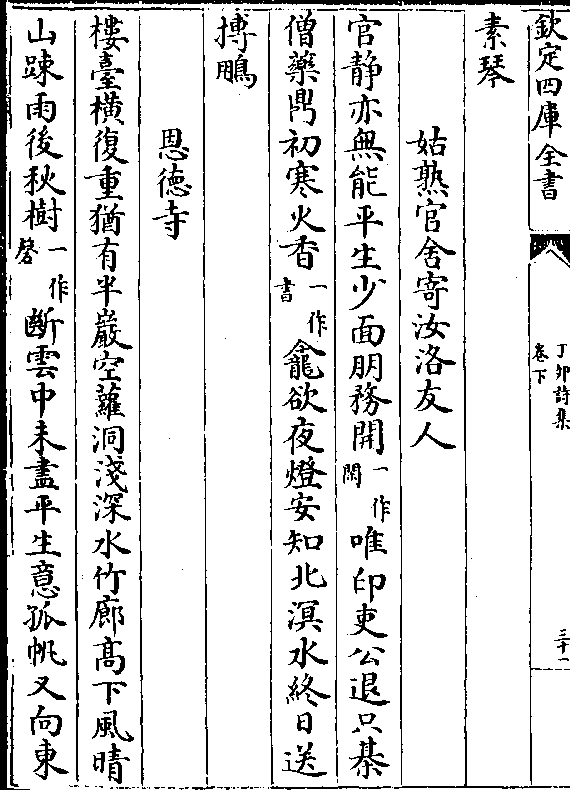 欽定四庫全書
丁卯詩集
卷下
三十一
素琴
姑熟官舍寄汝洛友人
官静亦無能平生少面朋務開一作閑唯印吏公退只棊
僧藥鼎初寒火香一作書龕欲夜燈安知北溟水終日送
搏鵬
恩德寺
樓臺横復重猶有半巖空蘿洞淺深水竹廊髙下風晴
山踈雨後秋樹一作磬斷雲中未盡平生意孤帆又向東